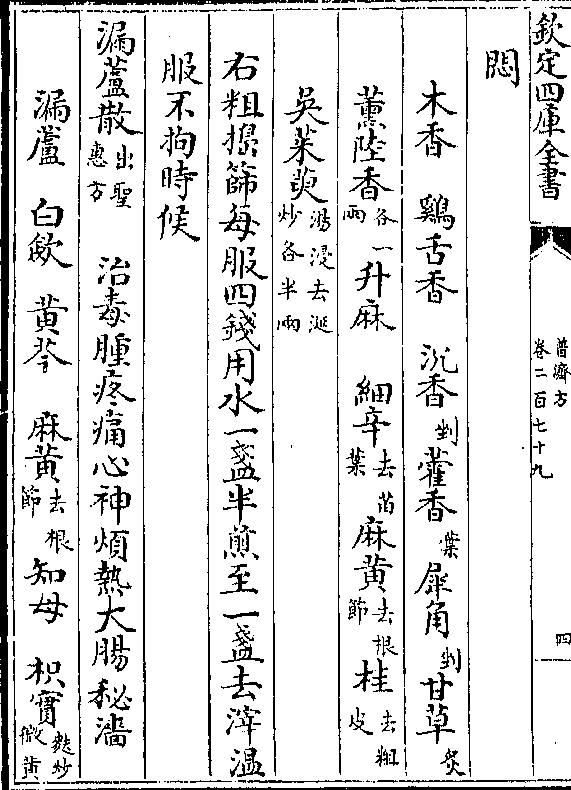 欽定四庫全書
普濟方
卷二百七十九
四
悶
木香 鷄舌香 沉香剉 藿香葉 犀角剉 甘草炙
薰陸香各一兩 升麻 細辛去苗葉 麻黄去根節 桂去粗皮
吳茱萸湯浸去涎炒各半兩
右粗搗篩每服四錢用水一盞半煎至一盞去滓温
服不拘時候
漏蘆散出聖惠方 治毒腫疼痛心神煩熱大腸秘濇
漏蘆 白歛 黄芩 麻黄去根節 知母 枳實麩炒微黄